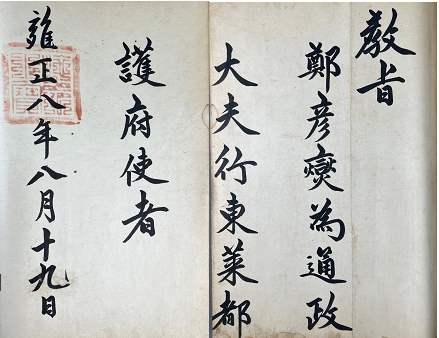 教旨
鄭彦燮為通政
大夫行東萊都
護府使者
雍正八年八月十九日